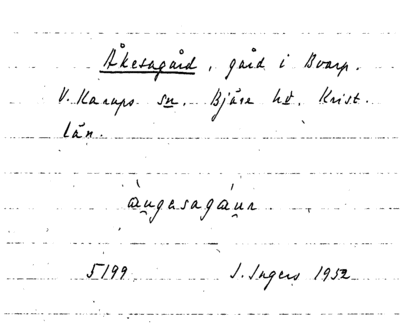 Åkesagård, gård i Bvarp.
V. Karups sn. Bjäre hd. Krist.
län.
àu̯gasagáu̯r
5199 I. Ingers 1952